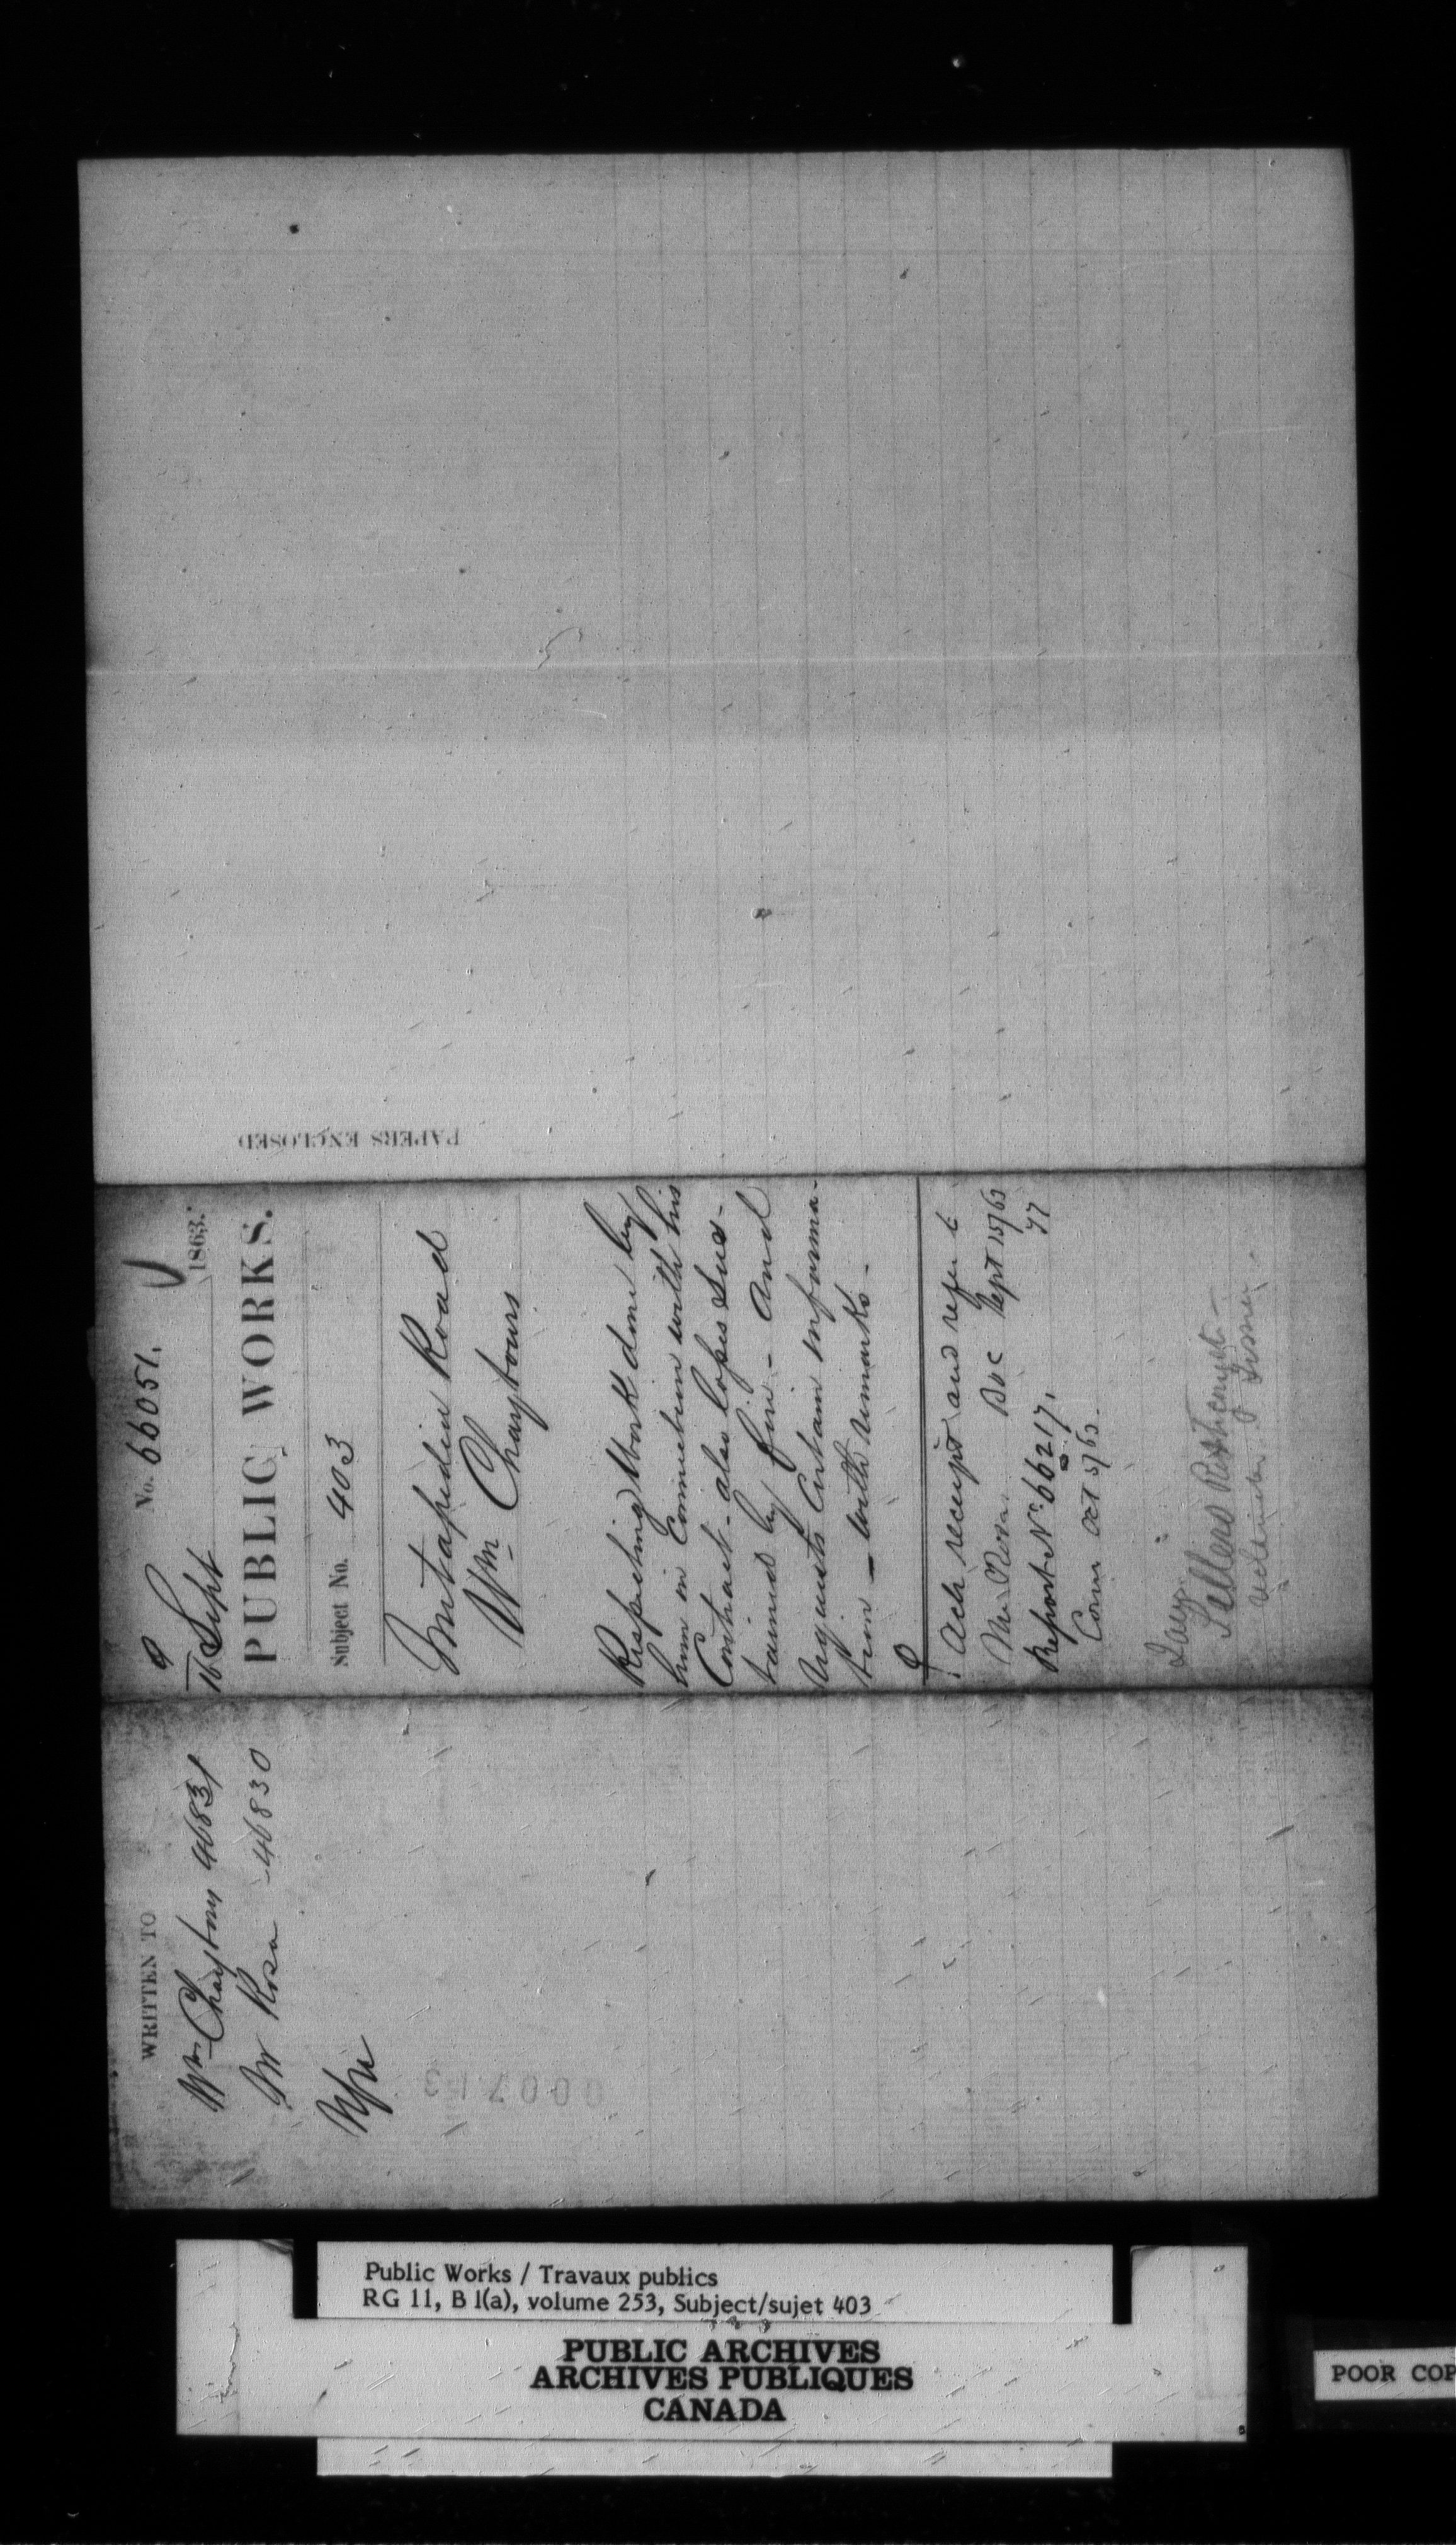 No. 66051.
16 Sept 1863.
PUBLIC WORKS.
Subject No. 403
Metapedia Road
Wm Chaytours
Respecting Work done by
him in Connection with his
Contract - also losses Sus-
tained by fire - and
requests Certain informa-
tion - with remarks -
Ack receipt and refer to
Mr Rosa. Sept 15/63
Report No 66217.
Com Oct 5/63.
PAPERS ENCLOSED
WRITTEN TO
Wm Chaytors 46831
Mr Rosa - 46830
000713
Public Works / Travaux publics
RG 11, B 1(a), volume 253, Subject/sujet 403
PUBLIC ARCHIVES
ARCHIVES PUBLIQUES
CANADA
POOR COP